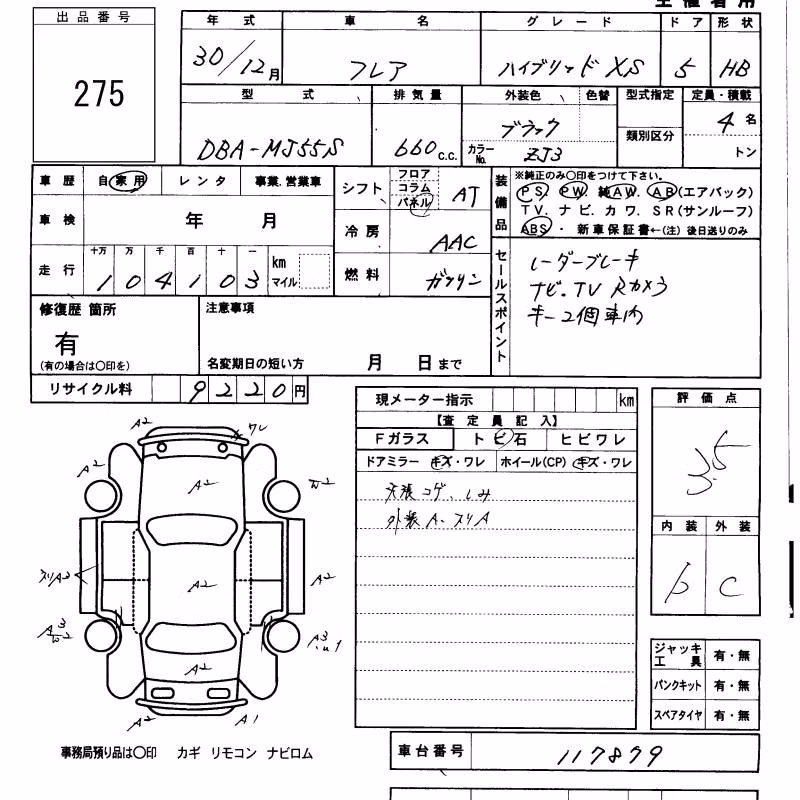 主催者用
出品番号
275
年式 車名 グレード ドア 形状
30/12月 フレア ハイブリッド XS 5 HB
型式 排気量 外装色 色替 型式指定 定員・積載
DBA-MJ55S 660 c.c. ブラック カラーNo. ZJ3 類別区分 4名 トン
車歴 自家用 レンタ 事業.営業車
車検 年 月
走行 十万 万 千 百 十 一
1 0 4 1 0 3 km マイル
シフト フロア コラム パネル AT
冷房 AAC
燃料 ガソリン
装備品
※純正のみ〇印をつけて下さい。
PS. PW. 純AW. AB(エアバック)
TV. ナビ. カワ. SR(サンルーフ)
ABS・ 新車保証書←(注)後日送りのみ
セールスポイント
レーダーブレーキ
ナビ.TV Rカメラ
キー2個車内
修復歴 箇所
有
(有の場合は〇印を)
注意事項
名変期日の短い方 月 日まで
リサイクル料 9220円
現メーター指示 km
【査定員記入】
Fガラス トビ石 ヒビワレ
ドアミラー キズ・ワレ ホイール(CP) キズ・ワレ
天張コゲ、しみ
外装A.スリA
評価点
3.5
内装 外装
b C
A2 ワレ
A2
A2
A2
A2
A2
スリA2
A3
A3
A2
A2 A1
ジャッキ工具 有・無
パンクキット 有・無
スペアタイヤ 有・無
事務局預り品は〇印 カギ リモコン ナビロム
車台番号 117879